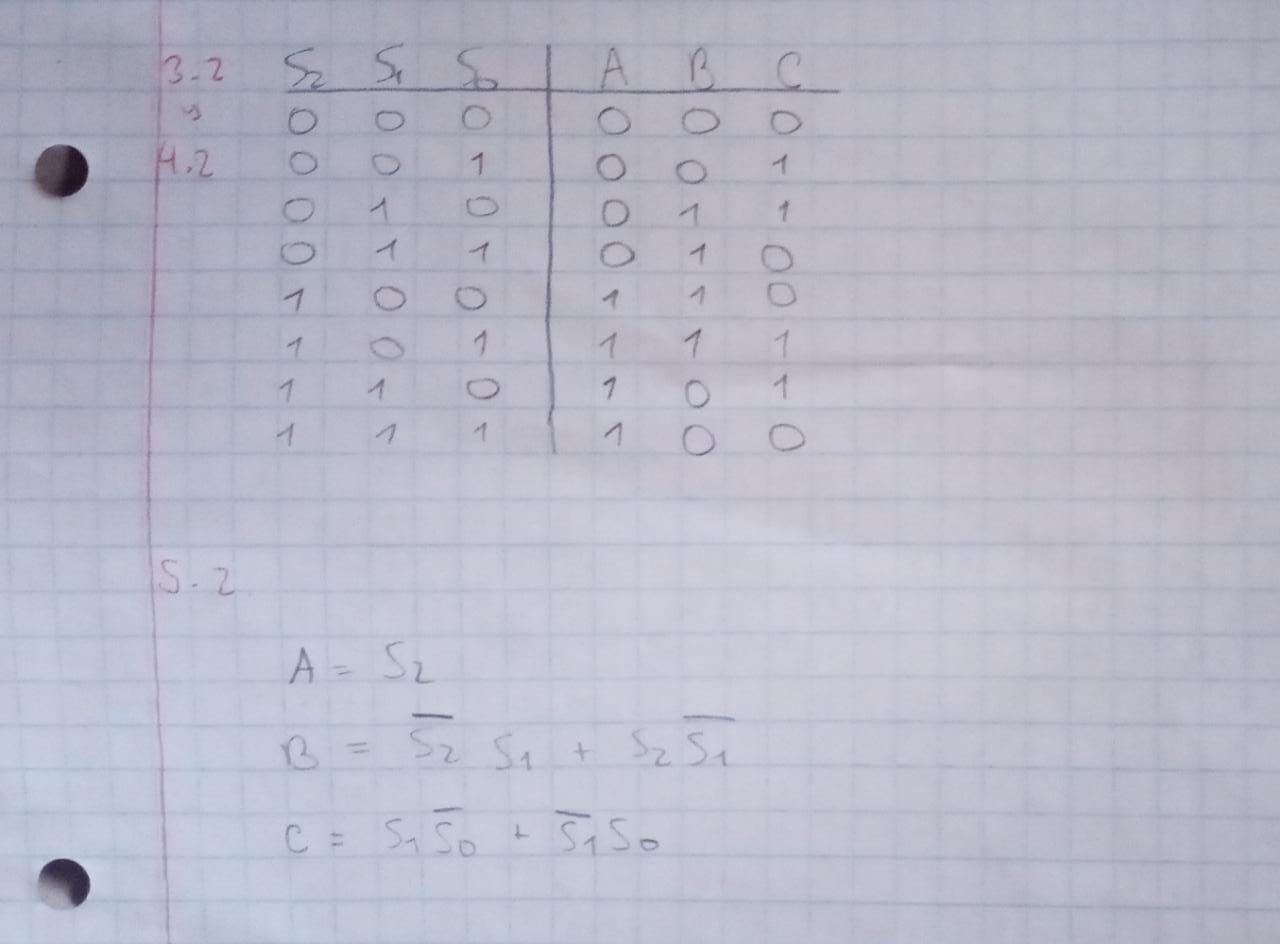 3.2 S₂ S₁ S₀ A B C
0 0 0 0 0 0
4.2 0 0 1 0 0 1
0 1 0 0 1 1
0 1 1 0 1 0
1 0 0 1 1 0
1 0 1 1 1 1
1 1 0 1 0 1
1 1 1 1 0 0
5.2
A = S₂
B = S̅₂ S₁ + S₂ S̅₁
C = S₁ S̅₀ + S̅₁ S₀